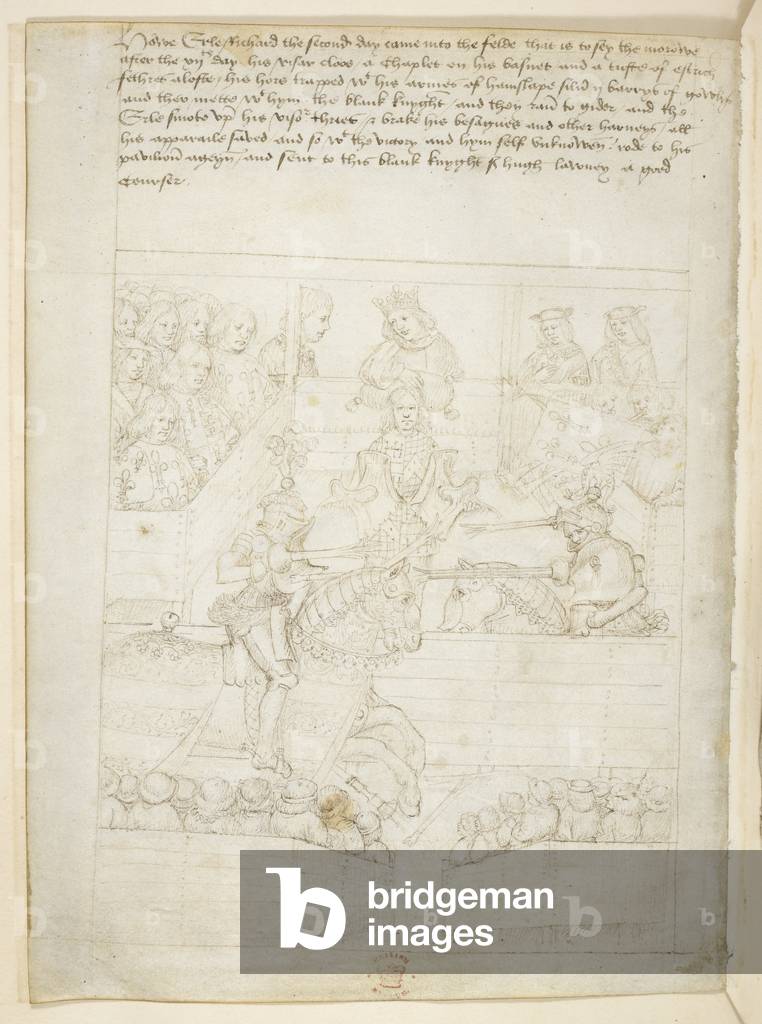 Howe Erle Richard the second day came into the felde that is to sey the morowe
after the xijth day his visar cloos a Chaplet on his basnet and a tufte of estrich
fethres alofte his hors trapped wt his armes of hamslape silu ij barrys of gowlys
and ther mette wt hym the blank knyght and they ran to gider and the
Erle smote vp his viser thries & brake his besagues and other harneys all
his apparaile saved and so wt the victory and hym self vnknowen rode to his
pavilion ageyn and sent to this blank knyght Sr hugh lawney a good
Courser
b
bridgeman
images